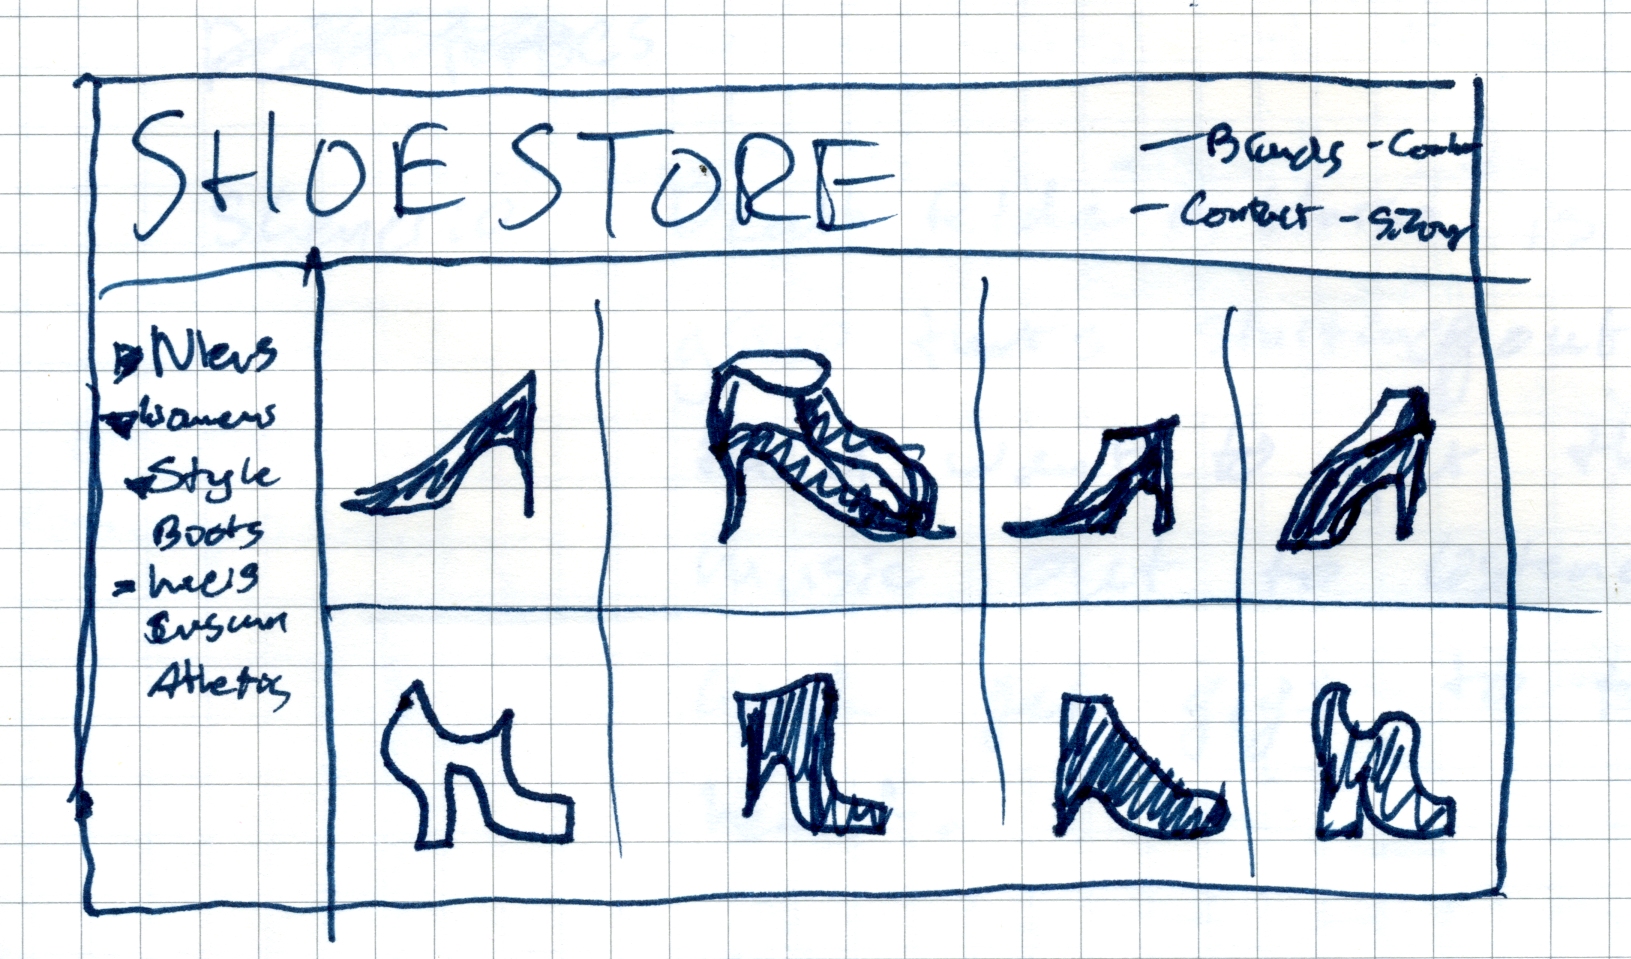 SHOE STORE
- Brands -
- Contact - Sizing
Mens
Womens
Style
Boots
heels
Athletics